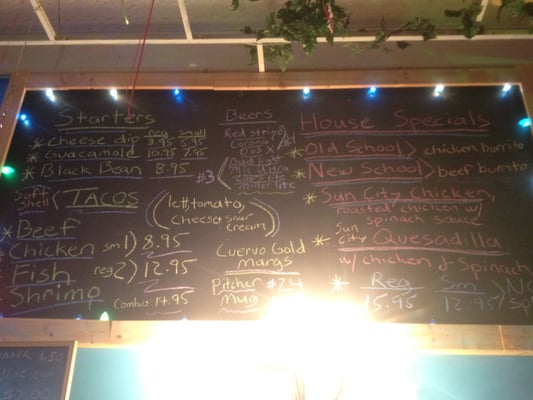 Starters
reg small
*Cheese dip 8.95 5.95
*Guacamole 10.95 7.95
*Black Bean 8.95
Soft shell
TACOS
(lett, tomato, cheese & sour cream)
*Beef
Chicken sm 1) 8.95
Fish reg 2) 12.95
Shrimp combo 14.95
Beers
Red stripe
Corona
Dos X
$4
$3
Bud light
Mic Ultra
Coors lite
Miller lite
Cuervo Gold
margs
Pitcher $24
Mug
House Specials
*Old School> chicken burrito
*New School> beef burrito
*Sun City Chicken,
roasted chicken w/
spinach sauce
*Sun City Quesadilla
w/ chicken & Spinach
* Reg Sm
15.95 12.95